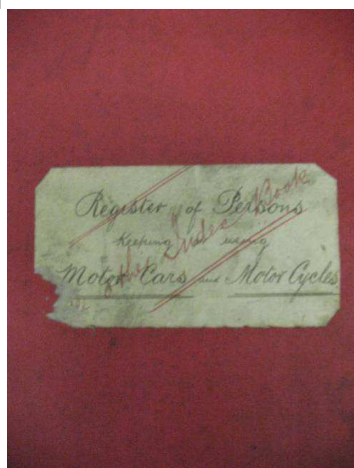 Register of Persons
Keeping using
Motor Cars and Motor Cycles
Index Book